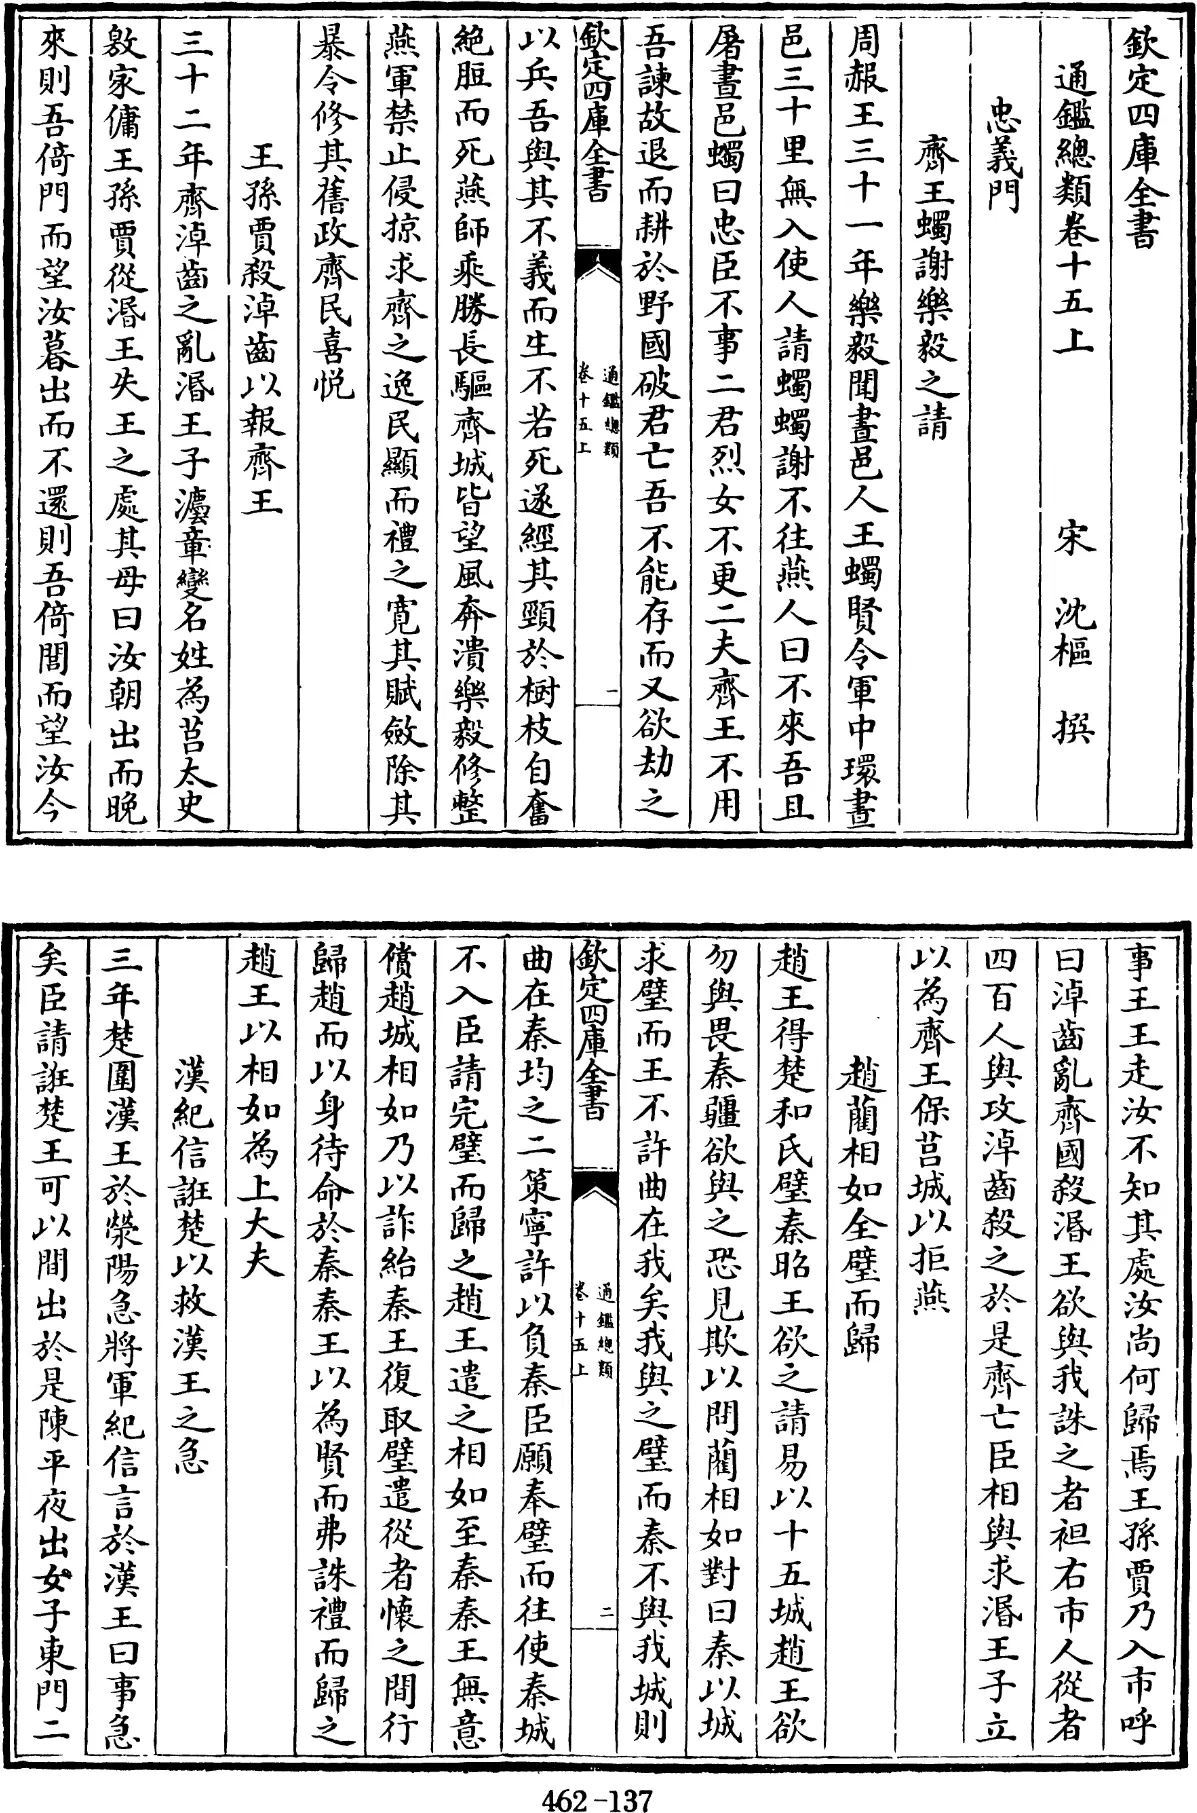 欽定四庫全書
通鑑總類卷十五上　宋　沈樞　撰
忠義門
齊王蠋謝樂毅之請
周赧王三十一年樂毅聞晝邑人王蠋賢令軍中環晝
邑三十里無入使人請蠋蠋謝不往燕人曰不來吾且
屠晝邑蠋曰忠臣不事二君烈女不更二夫齊王不用
吾諫故退而耕於野國破君亡吾不能存而又欲劫之
欽定四庫全書
通鑑總類
卷十五上
一
以兵吾與其不義而生不若死遂經其頸於樹枝自奮
絶脰而死燕師乘勝長驅齊城皆望風奔潰樂毅修整
燕軍禁止侵掠求齊之逸民顯而禮之寛其賦斂除其
暴令修其舊政齊民喜悦
王孫賈殺淖齒以報齊王
三十二年齊淖齒之亂湣王子灋章變名姓為莒太史
敫家傭王孫賈從湣王失王之處其母曰汝朝出而晚
來則吾倚門而望汝暮出而不還則吾倚閭而望汝今
事王王走汝不知其處汝尚何歸焉王孫賈乃入市呼
曰淖齒亂齊國殺湣王欲與我誅之者袒右市人從者
四百人與攻淖齒殺之於是齊亡臣相與求湣王子立
以為齊王保莒城以拒燕
趙藺相如全璧而歸
趙王得楚和氏璧秦昭王欲之請易以十五城趙王欲
勿與畏秦彊欲與之恐見欺以問藺相如對曰秦以城
求璧而王不許曲在我矣我與之璧而秦不與我城則
欽定四庫全書
通鑑總類
卷十五上
二
曲在秦均之二策寧許以負秦臣願奉璧而往使秦城
不入臣請完璧而歸之趙王遣之相如至秦秦王無意
償趙城相如乃以詐紿秦王復取璧遣從者懷之間行
歸趙而以身待命於秦秦王以為賢而弗誅禮而歸之
趙王以相如為上大夫
漢紀信誑楚以救漢王之急
三年楚圍漢王於滎陽急將軍紀信言於漢王曰事急
矣臣請誑楚王可以間出於是陳平夜出女子東門二
462-137